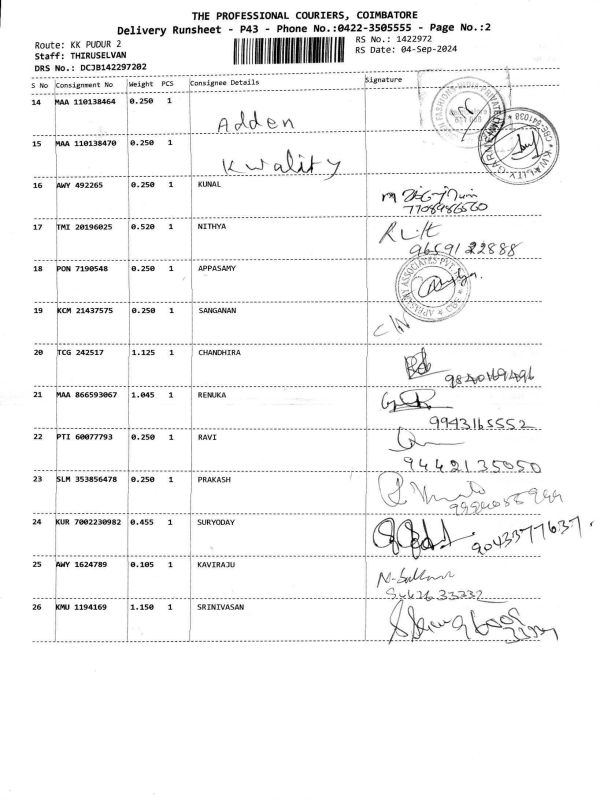 THE PROFESSIONAL COURIERS, COIMBATORE
Delivery Runsheet - P43 - Phone No.:0422-3505555 - Page No.:2
Route: KK PUDUR 2
RS No.: 1422972
Staff: THIRUSELVAN
RS Date: 04-Sep-2024
DRS No.: DCJB142297202
S No Consignment No Weight PCS Consignee Details Signature
14 MAA 110138464 0.250 1
Adden
15 MAA 110138470 0.250 1
Kwality
16 AWY 492265 0.250 1 KUNAL
7708986560
17 TMI 20196025 0.520 1 NITHYA
9659122888
18 PON 7190548 0.250 1 APPASAMY
19 KCM 21437575 0.250 1 SANGANAN
C/N
20 TCG 242517 1.125 1 CHANDHIRA
9840169496
21 MAA 866593067 1.045 1 RENUKA
9943165552
22 PTI 60077793 0.250 1 RAVI
9442135050
23 SLM 353856478 0.250 1 PRAKASH
24 KUR 7002230982 0.455 1 SURYODAY
9043377637
25 AWY 1624789 0.105 1 KAVIRAJU
26 KMU 1194169 1.150 1 SRINIVASAN